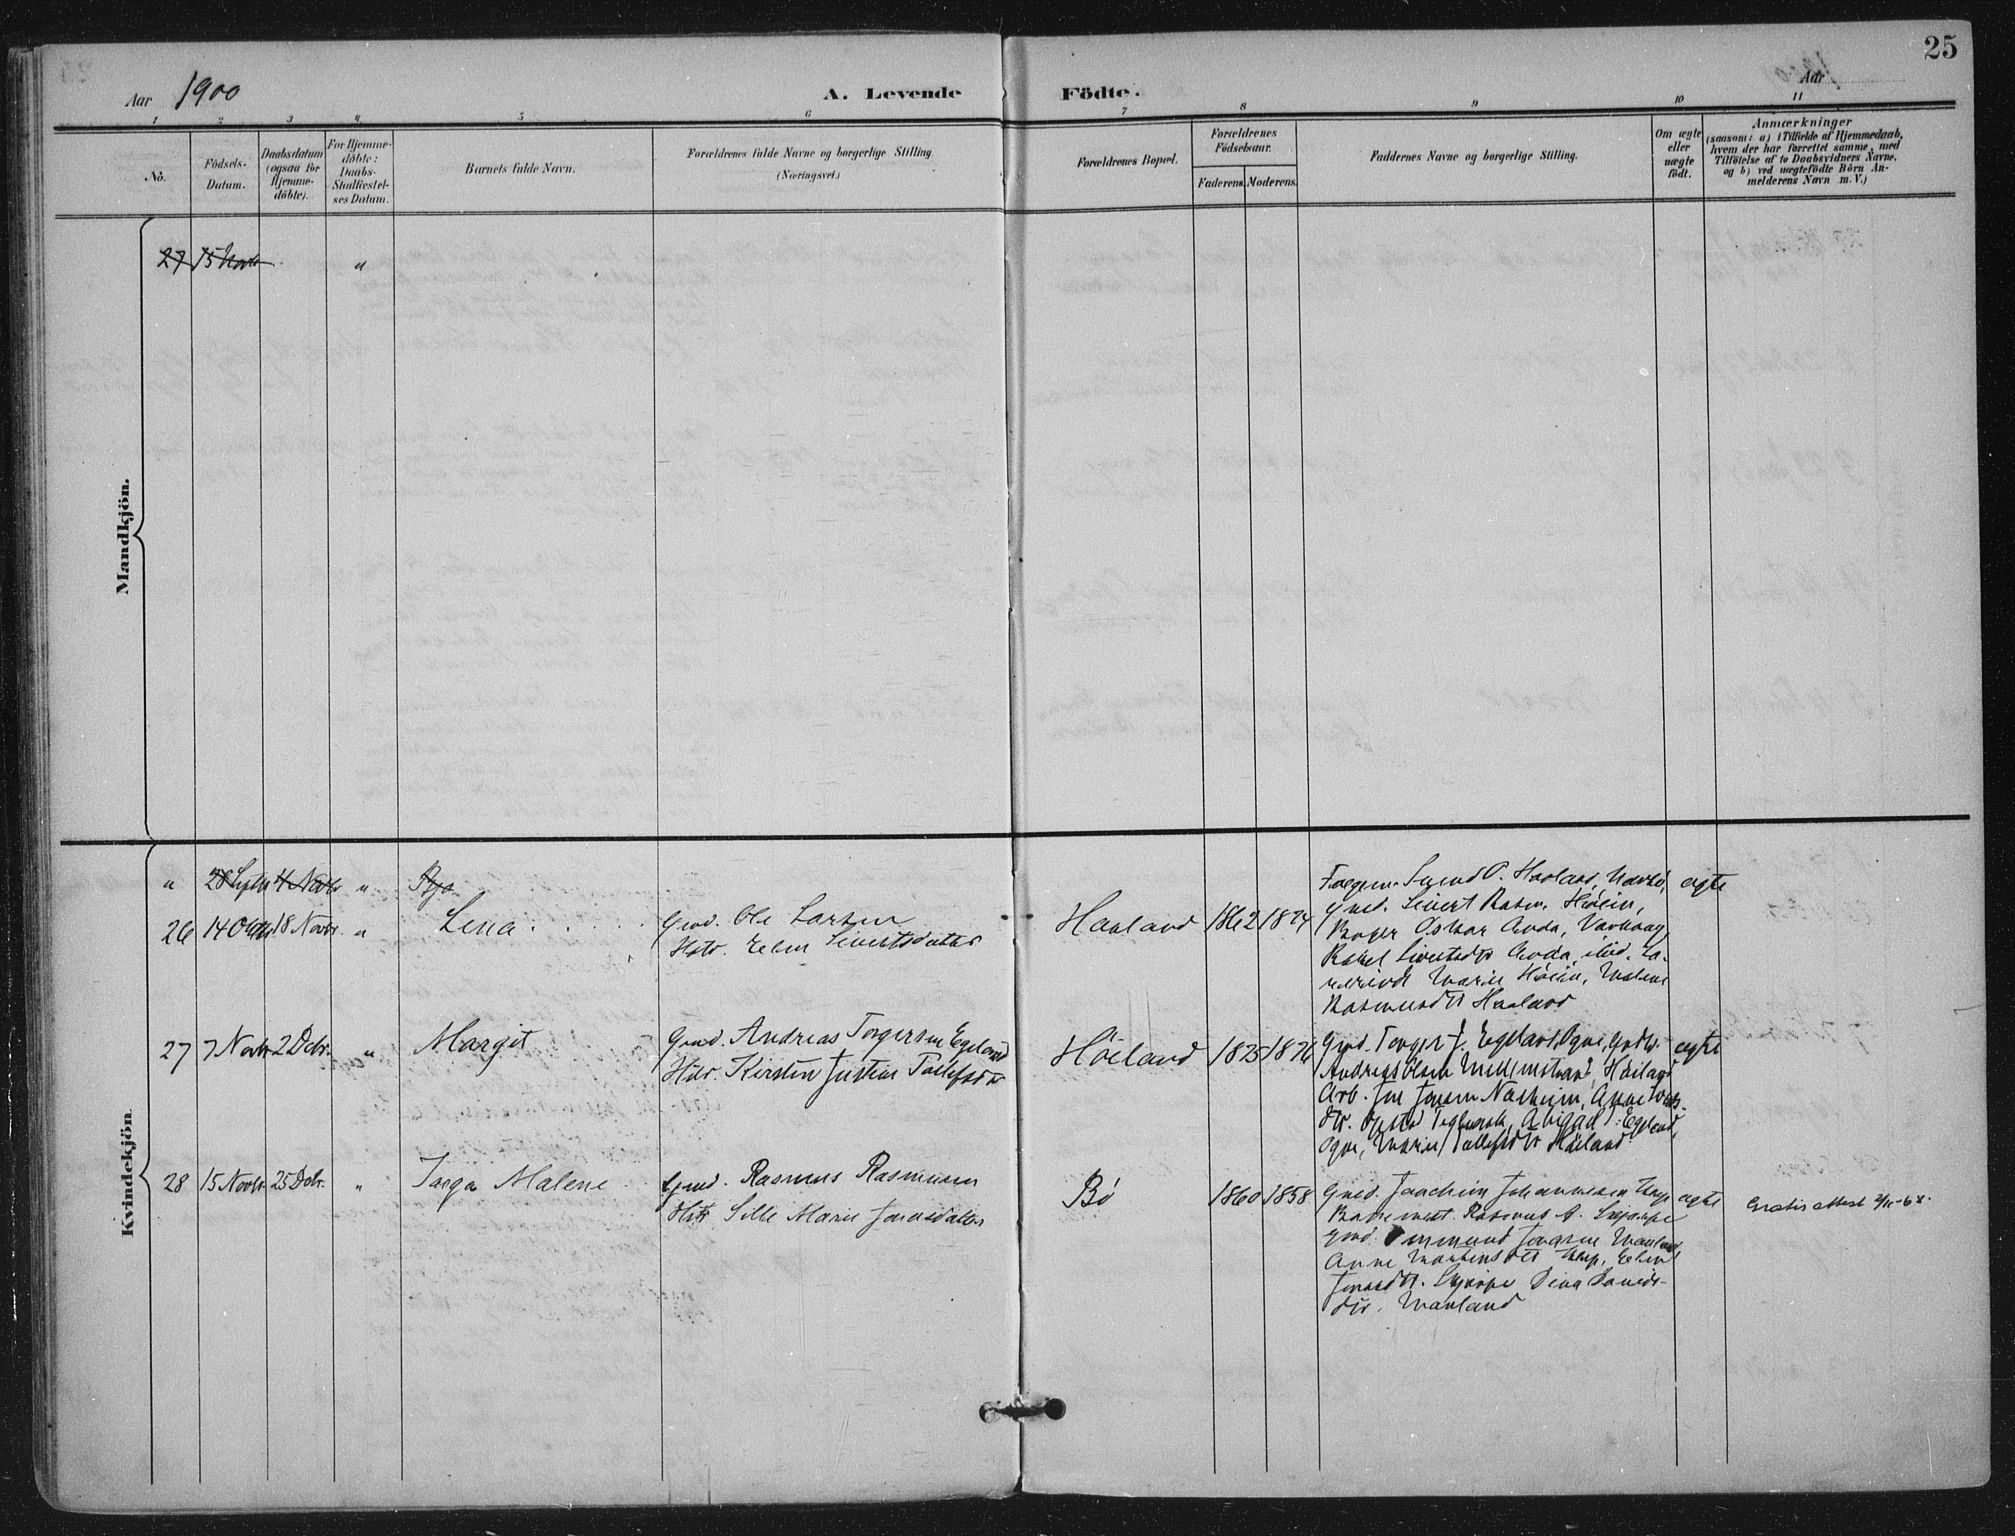 25
Aar 1900
A. Levende Födte.
Aar
1 2 3 4 5 6 7 8 9 10 11
No.
Födsels-
Datum.
Daabsdatum
(ogsaa for
Hjemme-
döbte).
For Hjemme-
döbte:
Daabs-
Stadfæstel-
ses Datum.
Barnets fulde Navn.
Forældrenes fulde Navne og borgerlige Stilling
(Næringsvei.)
Forældrenes Bopæl.
Forældrenes
Födselsaar.
Faderens. Moderens.
Faddernes Navne og borgerlige Stilling.
Om ægte
eller
uægte
födt.
Anmærkninger
(saasom: a) i Tilfælde af Hjemmedaab,
hvem der har forrettet samme, med
Tilföielse af to Daabsvidners Navne.
og b) ved uægtefödte Börn An-
melderens Navn m. V.)
Mandkjön.
27 15 Novbr "
Kvindekjön
" 28 Septbr 4 Novbr "
26 14 Octbr 18 Novbr. "
Lena
Gmd. Ole Larsen
Hstr. Elen Sivertsdatter
Haaland 1862 1874
O. Haaland,
Gmd. Sivert Rasm. Höien,
Oskar Anda,
Rakel Sivertsdtr Anda,
Marie Höien, Malene
Rasmusdtr Haaland
ægte
27 7 Novbr 2 Decbr. "
Margit
Gmd. Andreas Torgersen Egeland
Hstr. Kirsten Justine Tollefsdtr
Höiland 1875 1876
Gmd. Torger J. Egeland, Ogne,
Andreas Olsen Höiland
Arb. Jon Jonsen Nærheim, Anne
Abigael T. Egeland,
Ogne, Marie Tollefsdtr Höiland
ægte
28 15 Novbr. 25 Decbr. "
Inga Malene
Gmd. Rasmus Rasmusen
Hstr Sille Marie Jonasdatter
Bö 1860 1858
Gmd. Joachim Johannesen
Rasmus A.
Gmd. Ommund Jonasen
Anne Martinsdtr Elen
Jonasdtr. Dina Daniels-
dtr.
ægte
Gratis attest